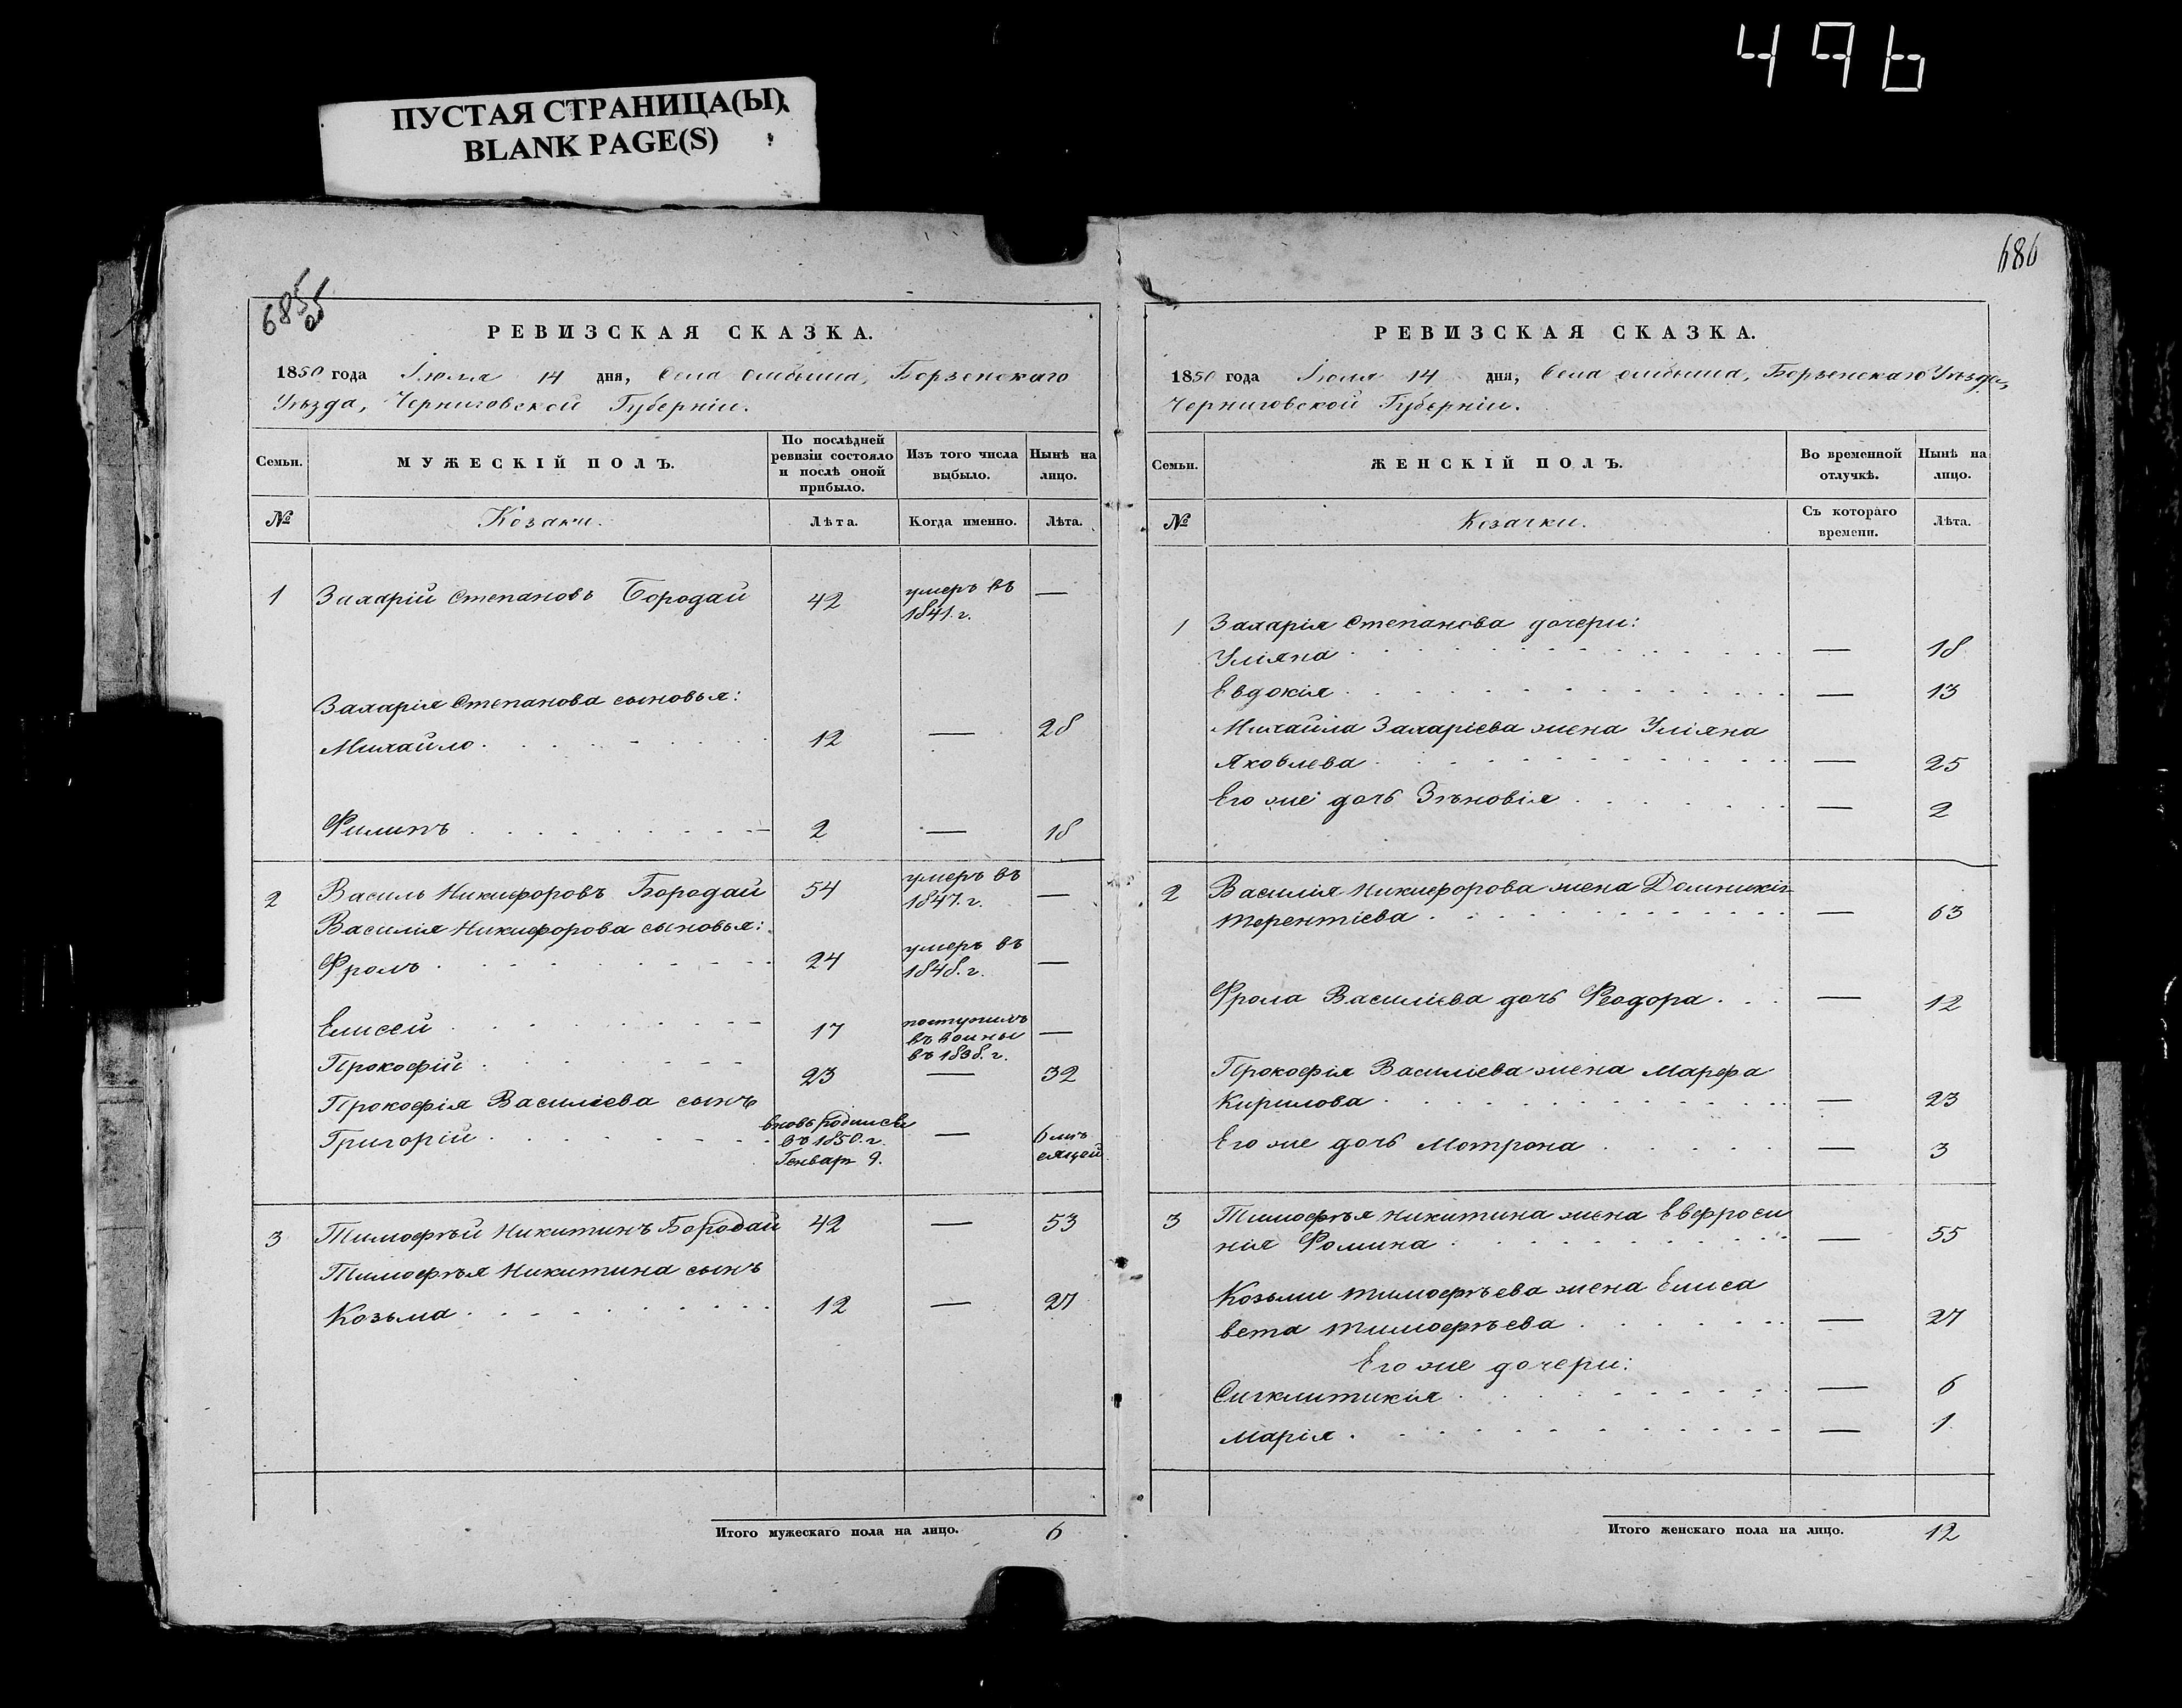 496
ПУСТАЯ СТРАНИЦА(Ы)
BLANK PAGE(S)
685
об
РЕВИЗСКАЯ СКАЗКА.
1850 года Июля 14 дня, Села Омбыша, Борзенскаго
Уѣзда, Черниговской Губерніи.
Семьи. МУЖЕСКІЙ ПОЛЪ. По послѣдней ревизіи состояло и послѣ оной прибыло. Изъ того числа выбыло. Нынѣ на лицо.
№ Козаки. Лѣта. Когда именно. Лѣта.
1 Захарій Степановъ Бородай 42 умеръ въ 1841. г. —
Захарія Степанова сыновья:
Михайло 12 — 28
Филипъ 2 — 18
2 Василь Никифоровъ Бородай 54 умеръ въ 1847. г. —
Василія Никифорова сыновья:
Фролъ 24 умеръ въ 1848. г. —
Елисей 17 поступилъ въ воины въ 1838. г. —
Прокофій 23 — 32
Прокофія Василіева сынъ
Григорій вновь родился въ 1850. г. Генваря 9. — 6 мѣсяцей
3 Тимофѣй Никитинъ Бородай 42 — 53
Тимофѣя Никитина сынъ
Козьма 12 — 27
Итого мужескаго пола на лицо. 6
686
РЕВИЗСКАЯ СКАЗКА.
1850 года Июля 14 дня, Села Омбыша, Борзенскаго Уѣзда,
Черниговской Губерніи.
Семьи. ЖЕНСКІЙ ПОЛЪ. Во временной отлучкѣ. Нынѣ на лицо.
№ Козачки. Съ котораго времени. Лѣта.
1 Захарія Степанова дочери:
Уліяна — 18
Евдокія — 13
Михайла Захаріева жена Уліяна
Яковлева — 25
Его же дочь Зѣновія — 2
2 Василія Никифорова жена Домникія
Терентіева — 63
Фрола Василіева дочь Феодора — 12
Прокофія Василіева жена Марфа
Кирилова — 23
Его же дочь Мотрона — 3
3 Тимофѣя Никитина жена Евфроси
нія Фомина — 55
Козьми Тимофѣева жена Елиса
вета Тимофѣева — 27
Его же дочери:
Сигклитикія — 6
Марія — 1
Итого женскаго пола на лицо. 12